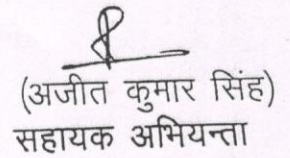 (अजीत कुमार सिंह)
सहायक अभियन्ता